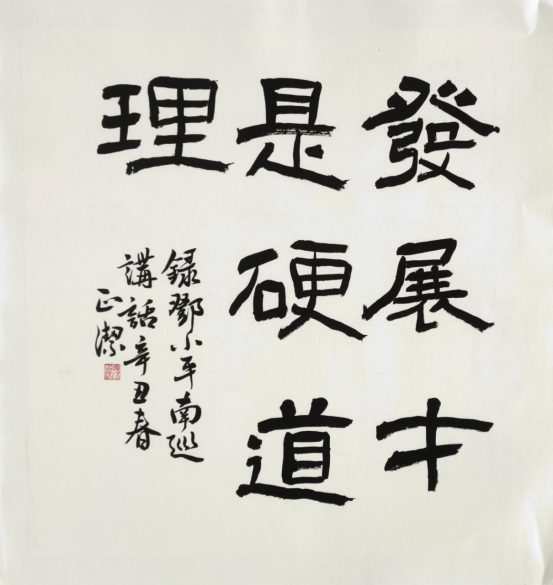 發展才
是硬道
理
録鄧小平南巡
講話辛丑春
正潔